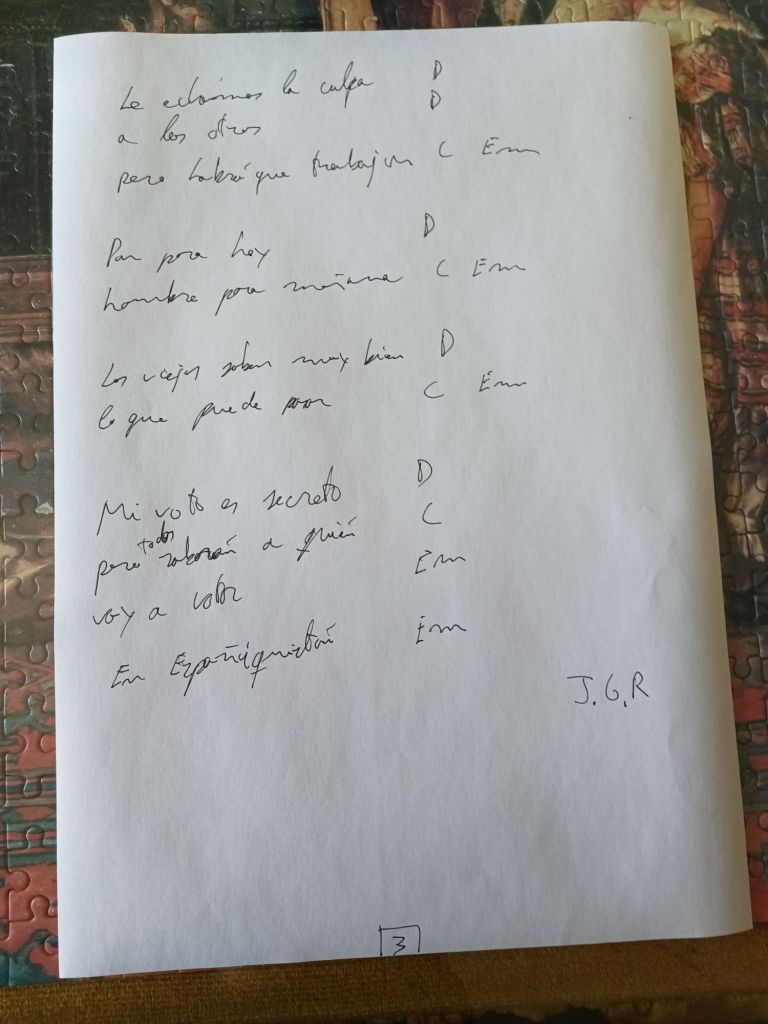 Le echamos la culpa D
a los otros D
pero habrá que trabajar C Em
Pan para hoy D
hambre para mañana C Em
Los viejos saben muy bien D
lo que puede pasar C Em
Mi voto es secreto D
pero todos sabrán a quién C
voy a votar Em
En Españiquistán Em
J.G.R
3